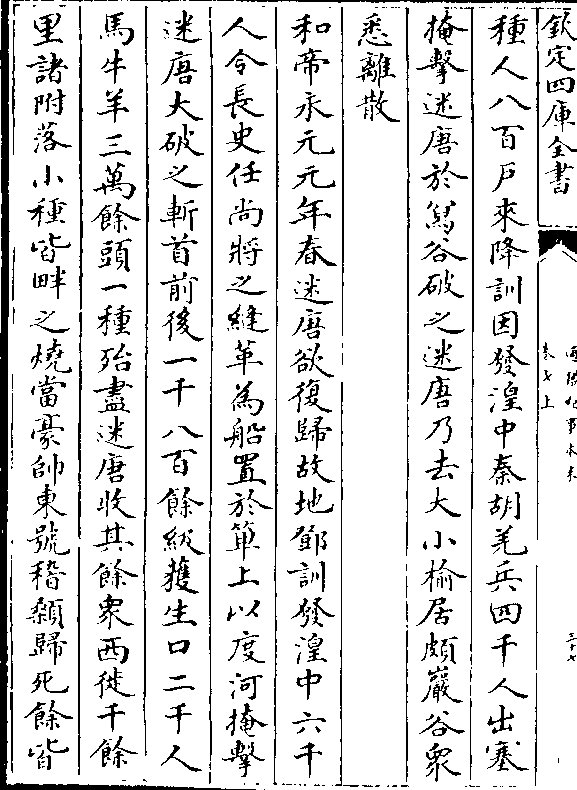 欽定四庫全書
通鑑紀事本末
卷七上
三十七
種人八百戶來降訓因發湟中秦胡羌兵四千人出塞
掩擊迷唐於寫谷破之迷唐乃去大小榆居頗巖谷衆
悉離散
和帝永元元年春迷唐欲復歸故地鄧訓發湟中六千
人令長史任尚將之縫革為船置於箄上以度河掩擊
迷唐大破之斬首前後一千八百餘級獲生口二千人
馬牛羊三萬餘頭一種殆盡迷唐收其餘衆西徙千餘
里諸附落小種皆畔之燒當豪帥東號稽顙歸死餘皆